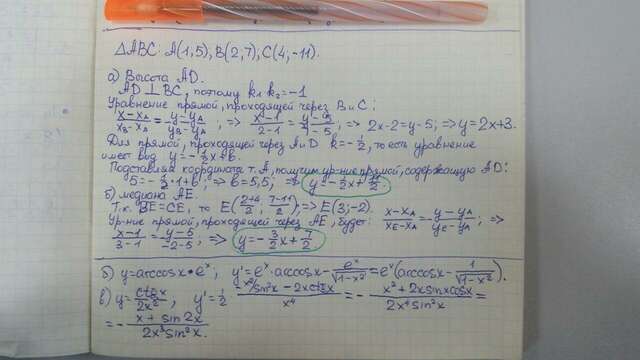 ΔABC: A(1,5), B(2,7), C(4,-11).
а) Высота AD.
AD ⊥ BC, поэтому k₁ k₂ = -1
Уравнение прямой, проходящей через B и C:
(x-x_A)/(x_B-x_A) = (y-y_A)/(y_B-y_A); => (x-1)/(2-1) = (y-5)/(7-5); => 2x-2=y-5; => y=2x+3.
Для прямой, проходящей через A и D k=-1/2, то есть уравнение
имеет вид y=-1/2x+b.
Подставляя координаты т. A, получим ур-ние прямой, содержащую AD:
5=-1/2·1+b; => b=5,5; => y=-1/2x+11/2.
б) медиана AE.
Т.к. BE=CE, то E((2+4)/2; (7-11)/2); => E(3;-2).
Ур-ние прямой, проходящей через AE, будет: (x-x_A)/(x_E-x_A) = (y-y_A)/(y_E-y_A); =>
(x-1)/(3-1) = (y-5)/(-2-5); => y=-3/2x+7/2
б) y=arccosx•eˣ; y'=eˣ·arccosx-eˣ/√(1-x²)=eˣ(arccosx-1/√(1-x²)).
в) y=ctgx/2x², y'=1/2 (-x²/sin²x-2xctgx)/x⁴ = -(x²+2xsinxcosx)/2x⁴sin²x =
=-(x+sin2x)/2x³sin²x.